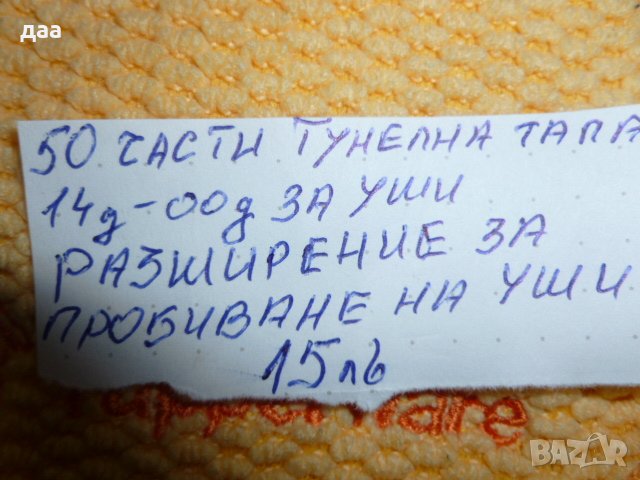 даа
50 ЧАСТИ ТУНЕЛНА ТАПА
14g-00g ЗА УШИ
РАЗШИРЕНИЕ ЗА
ПРОБИВАНЕ НА УШИ
15лв
BAZAR